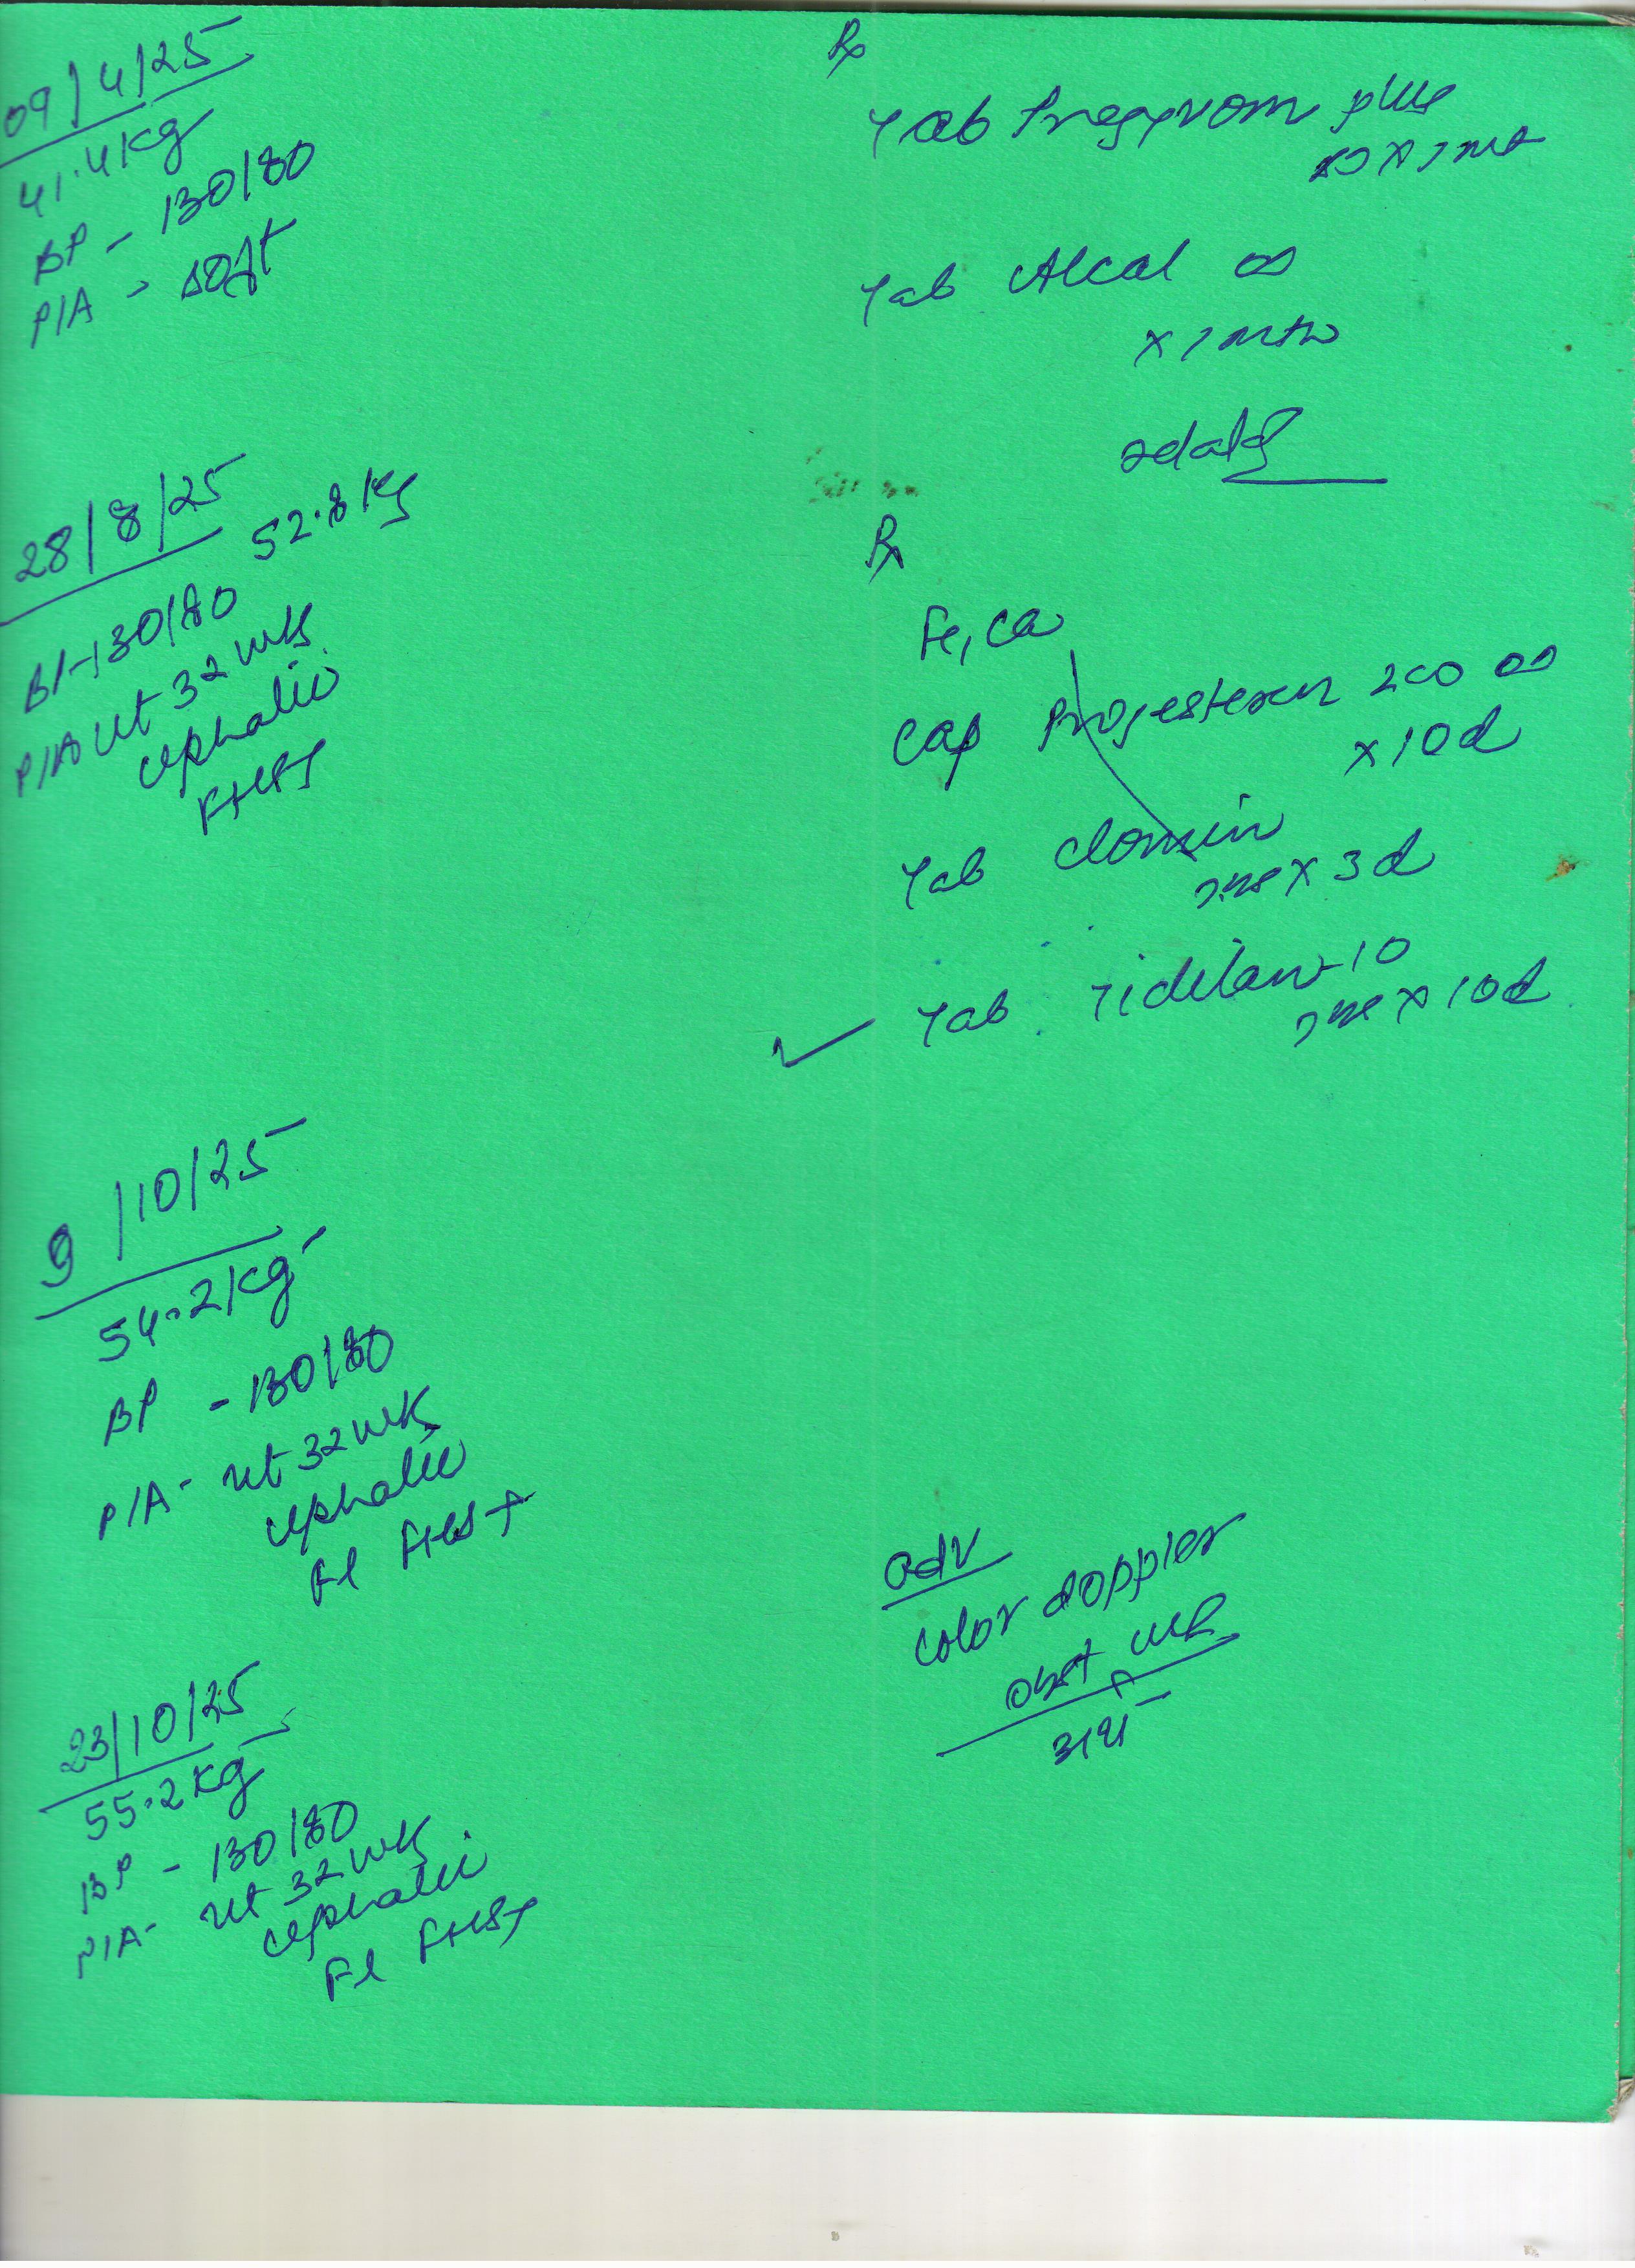 09/4/25
41.4kg
BP - 130/80
P/A - soft
Rx
Tab Pregnom plus
OD x 1 mth
Tab Alcal OD
x 1 mth
28/8/25
52.8 kg
BP-130/80
P/A ut 32 wks
cephalic
FHS+
Rx
Fe, Ca
Cap Progesteron 200 OD
x 10d
Tab
x 3d
Tab Tidilan-10
x 10d
9/10/25
54.2kg
BP - 130/80
P/A- ut 32 wks
cephalic
Fl FHS+
23/10/25
55.2kg
BP - 130/80
P/A- ut 32 wks
cephalic
Fl FHS+
adv
Color doppler
obst